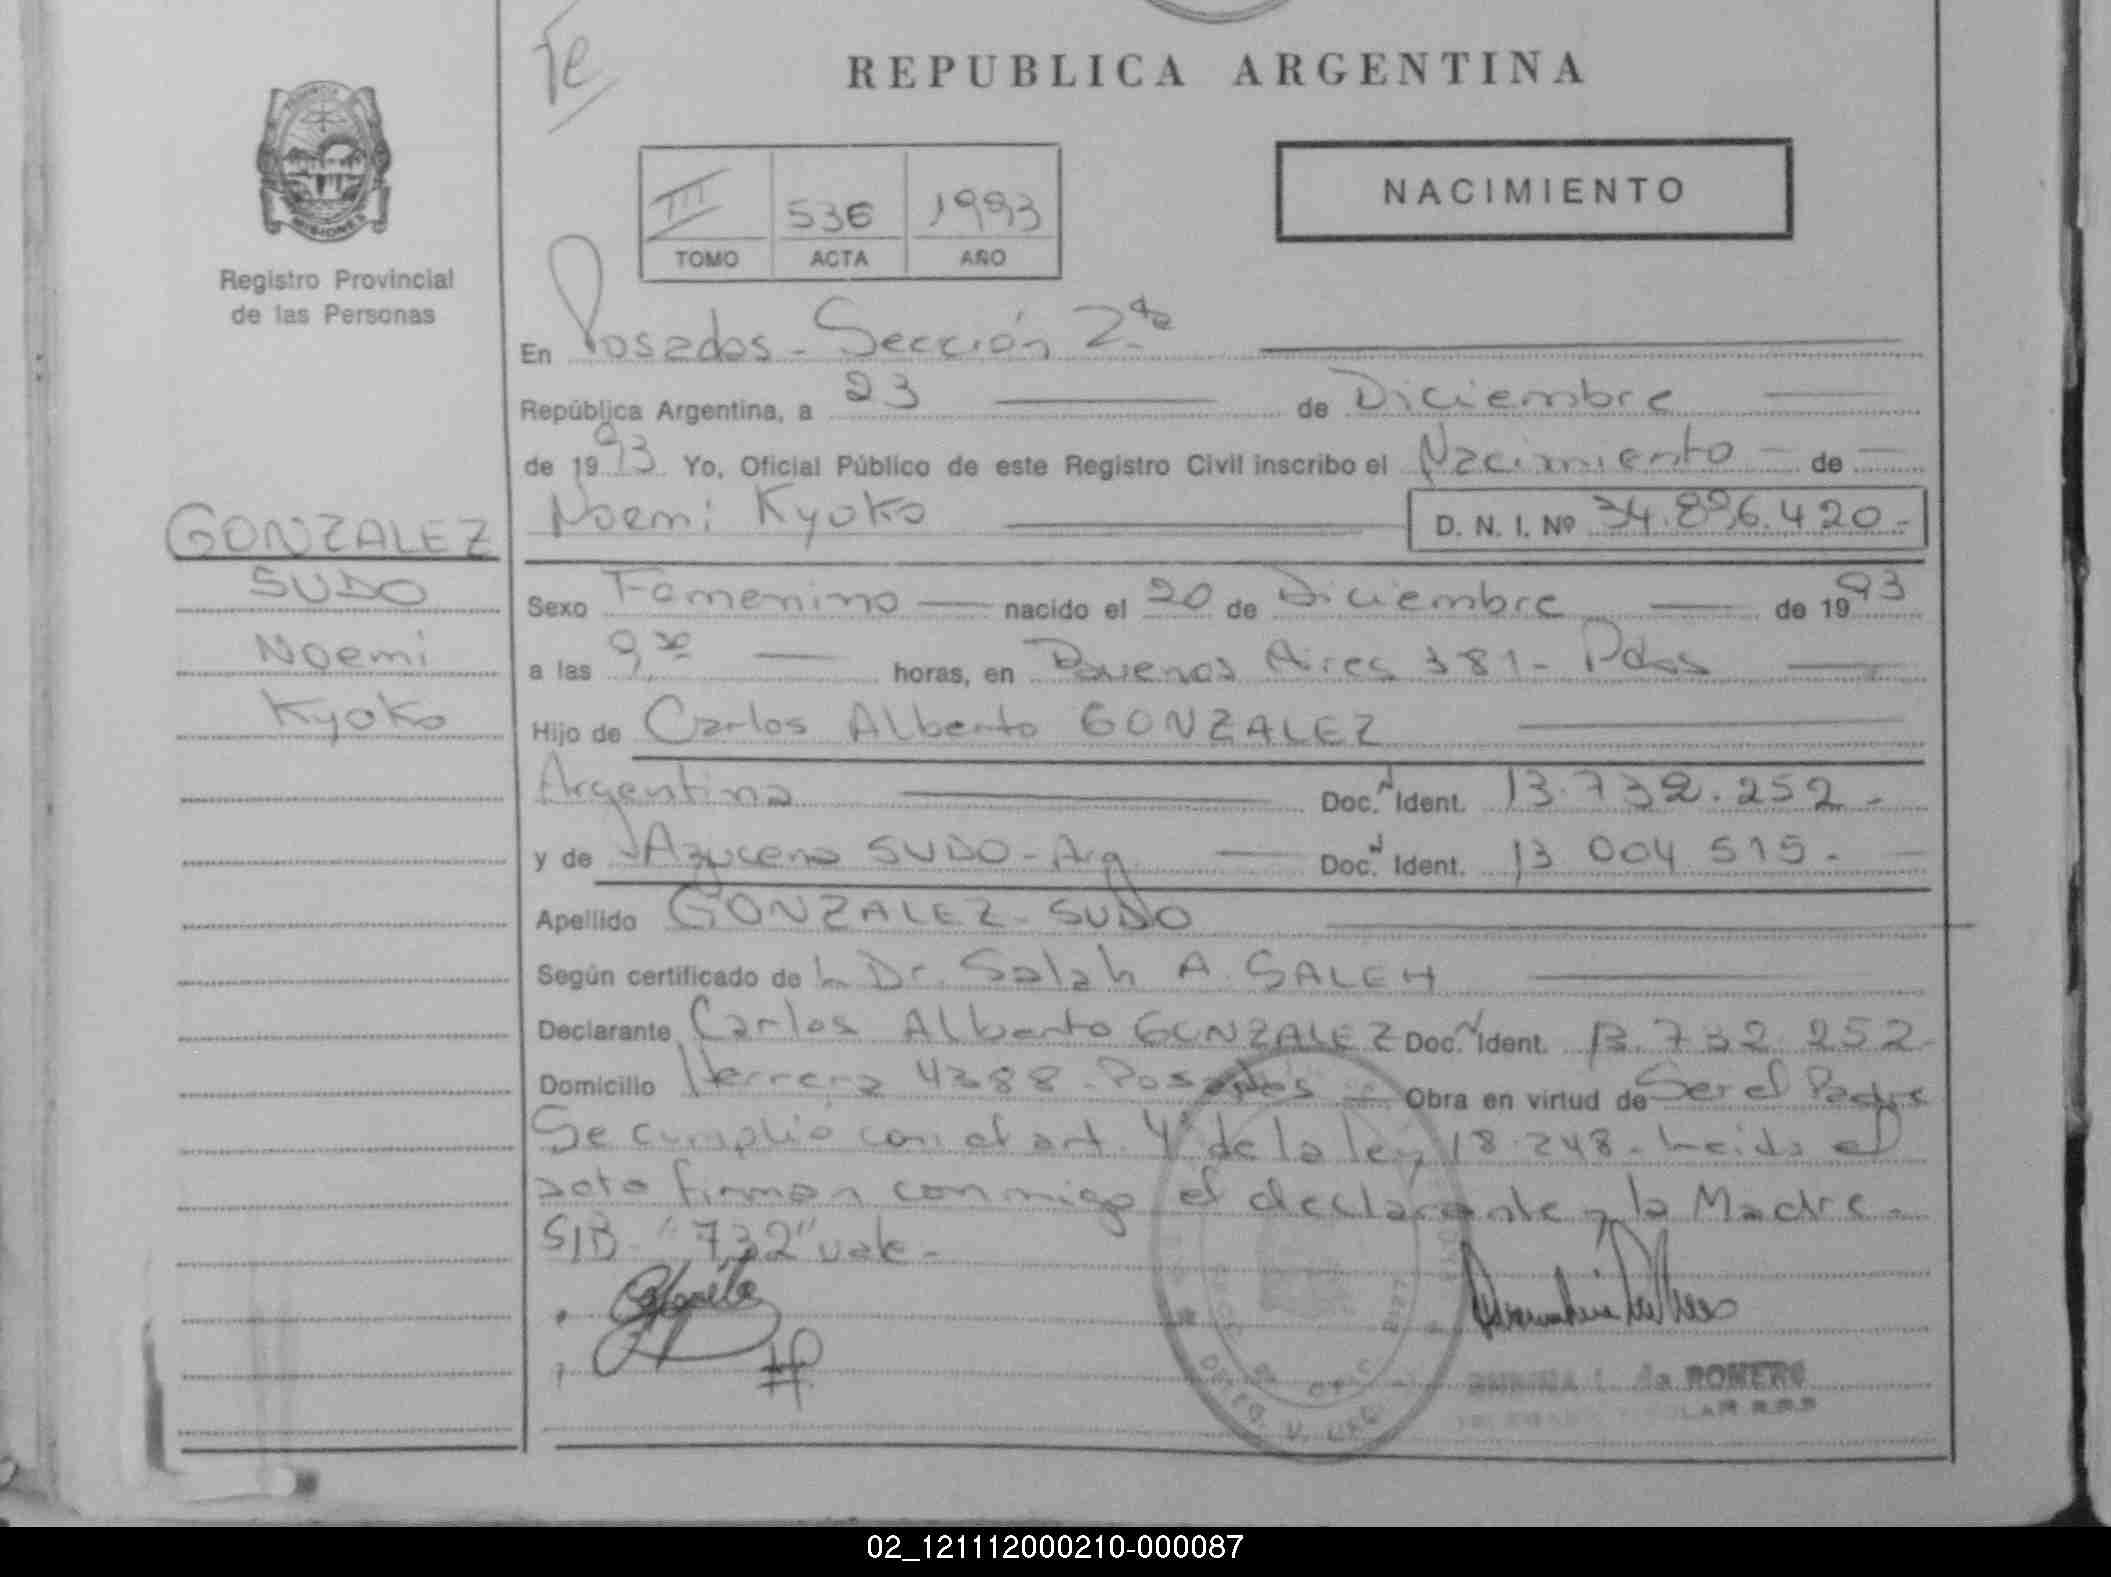 Te
REPUBLICA ARGENTINA
MISIONES
Registro Provincial
de las Personas
III 536 1993
TOMO ACTA AÑO
NACIMIENTO
En Posadas - Sección 2da
República Argentina, a 23 de Diciembre
de 1993 Yo, Oficial Público de este Registro Civil inscribo el Nacimiento de
Noemi Kyoko D. N. I. Nº 34.896.420.-
GONZALEZ
SUDO
Noemi
Kyoko
Sexo Femenino nacido el 20 de Diciembre de 1993
a las 9,30 horas, en Buenos Aires 381 - Pdas
Hijo de Carlos Alberto GONZALEZ
Argentina Doc. Ident. 13.732.252.-
y de Azucena SUDO - Arg Doc. Ident. 13 004 515.-
Apellido GONZALEZ - SUDO
Según certificado de L Dr. Salah A. SALEH
Declarante Carlos Alberto GONZALEZ Doc. Ident. 13.732.252-
Domicilio Herrera 4388 - Posadas - Obra en virtud de Ser el Padre
Se cumplió con el art. 4º de la ley 18.248 - Leida el
acta firman conmigo el declarante y la Madre.-
S/B "732" vale -
de ROMERO
02_121112000210-000087